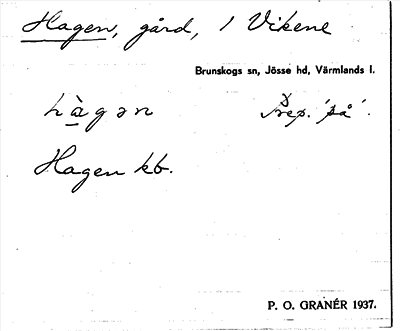 Hagen, gård, / Vikene
Brunskogs sn, Jösse hd, Värmlands l.
hàgən Prep. 'på'.
Hagen kb.
P. O. GRANÉR 1937.